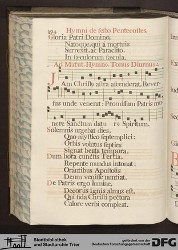 Hymni de festo Pentecostes.
Gloria Patri Domino,
Natoque, qui a mortuis
Surrexit, ac Paraclito,
In seculorum secula.
Ad Matut. Hymnus. Tonus
Jam Christus astra ascenderat, Rever-
sus unde venerat: Promissum Patris mu-
nere Sanctum datu Spiritum.
Solemnis urgebat dies,
Quo mystico septemplici
Orbis volutus septies
Signat beata tempora.
Dum hora cunctis Tertia
Repente mundus intonat:
Orantibus Apostolis
Deum venisse nuntiat.
De Patris ergo lumine,
Decorus ignis almus est,
Qui fida Christi pectora
Calore verbi compleat.
Stadtbibliothek
und Stadtarchiv Trier
DFG